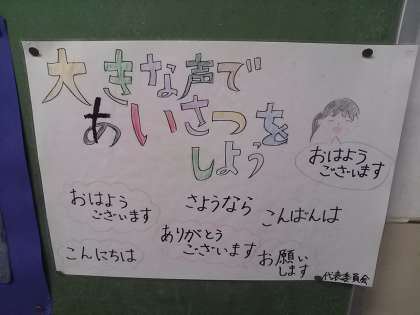 大きな声で
あいさつを
しよう
おはよう
ございます
おはよう
ございます
さようなら
こんばんは
ありがとう
ございます
こんにちは
お願い
します
代表委員会